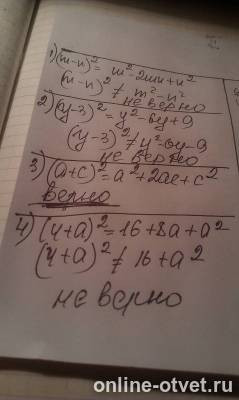 1) (m-n)² = m²-2mn+n²
(m-n)² ≠ m²-n²
не верно
2) (y-3)² = y²-6y+9
(y-3)² ≠ y²-6y-9
не верно
3) (a+c)² = a²+2ac+c²
верно
4) (4+a)² = 16+8a+a²
(4+a)² ≠ 16+a²
не верно
online-otvet.ru